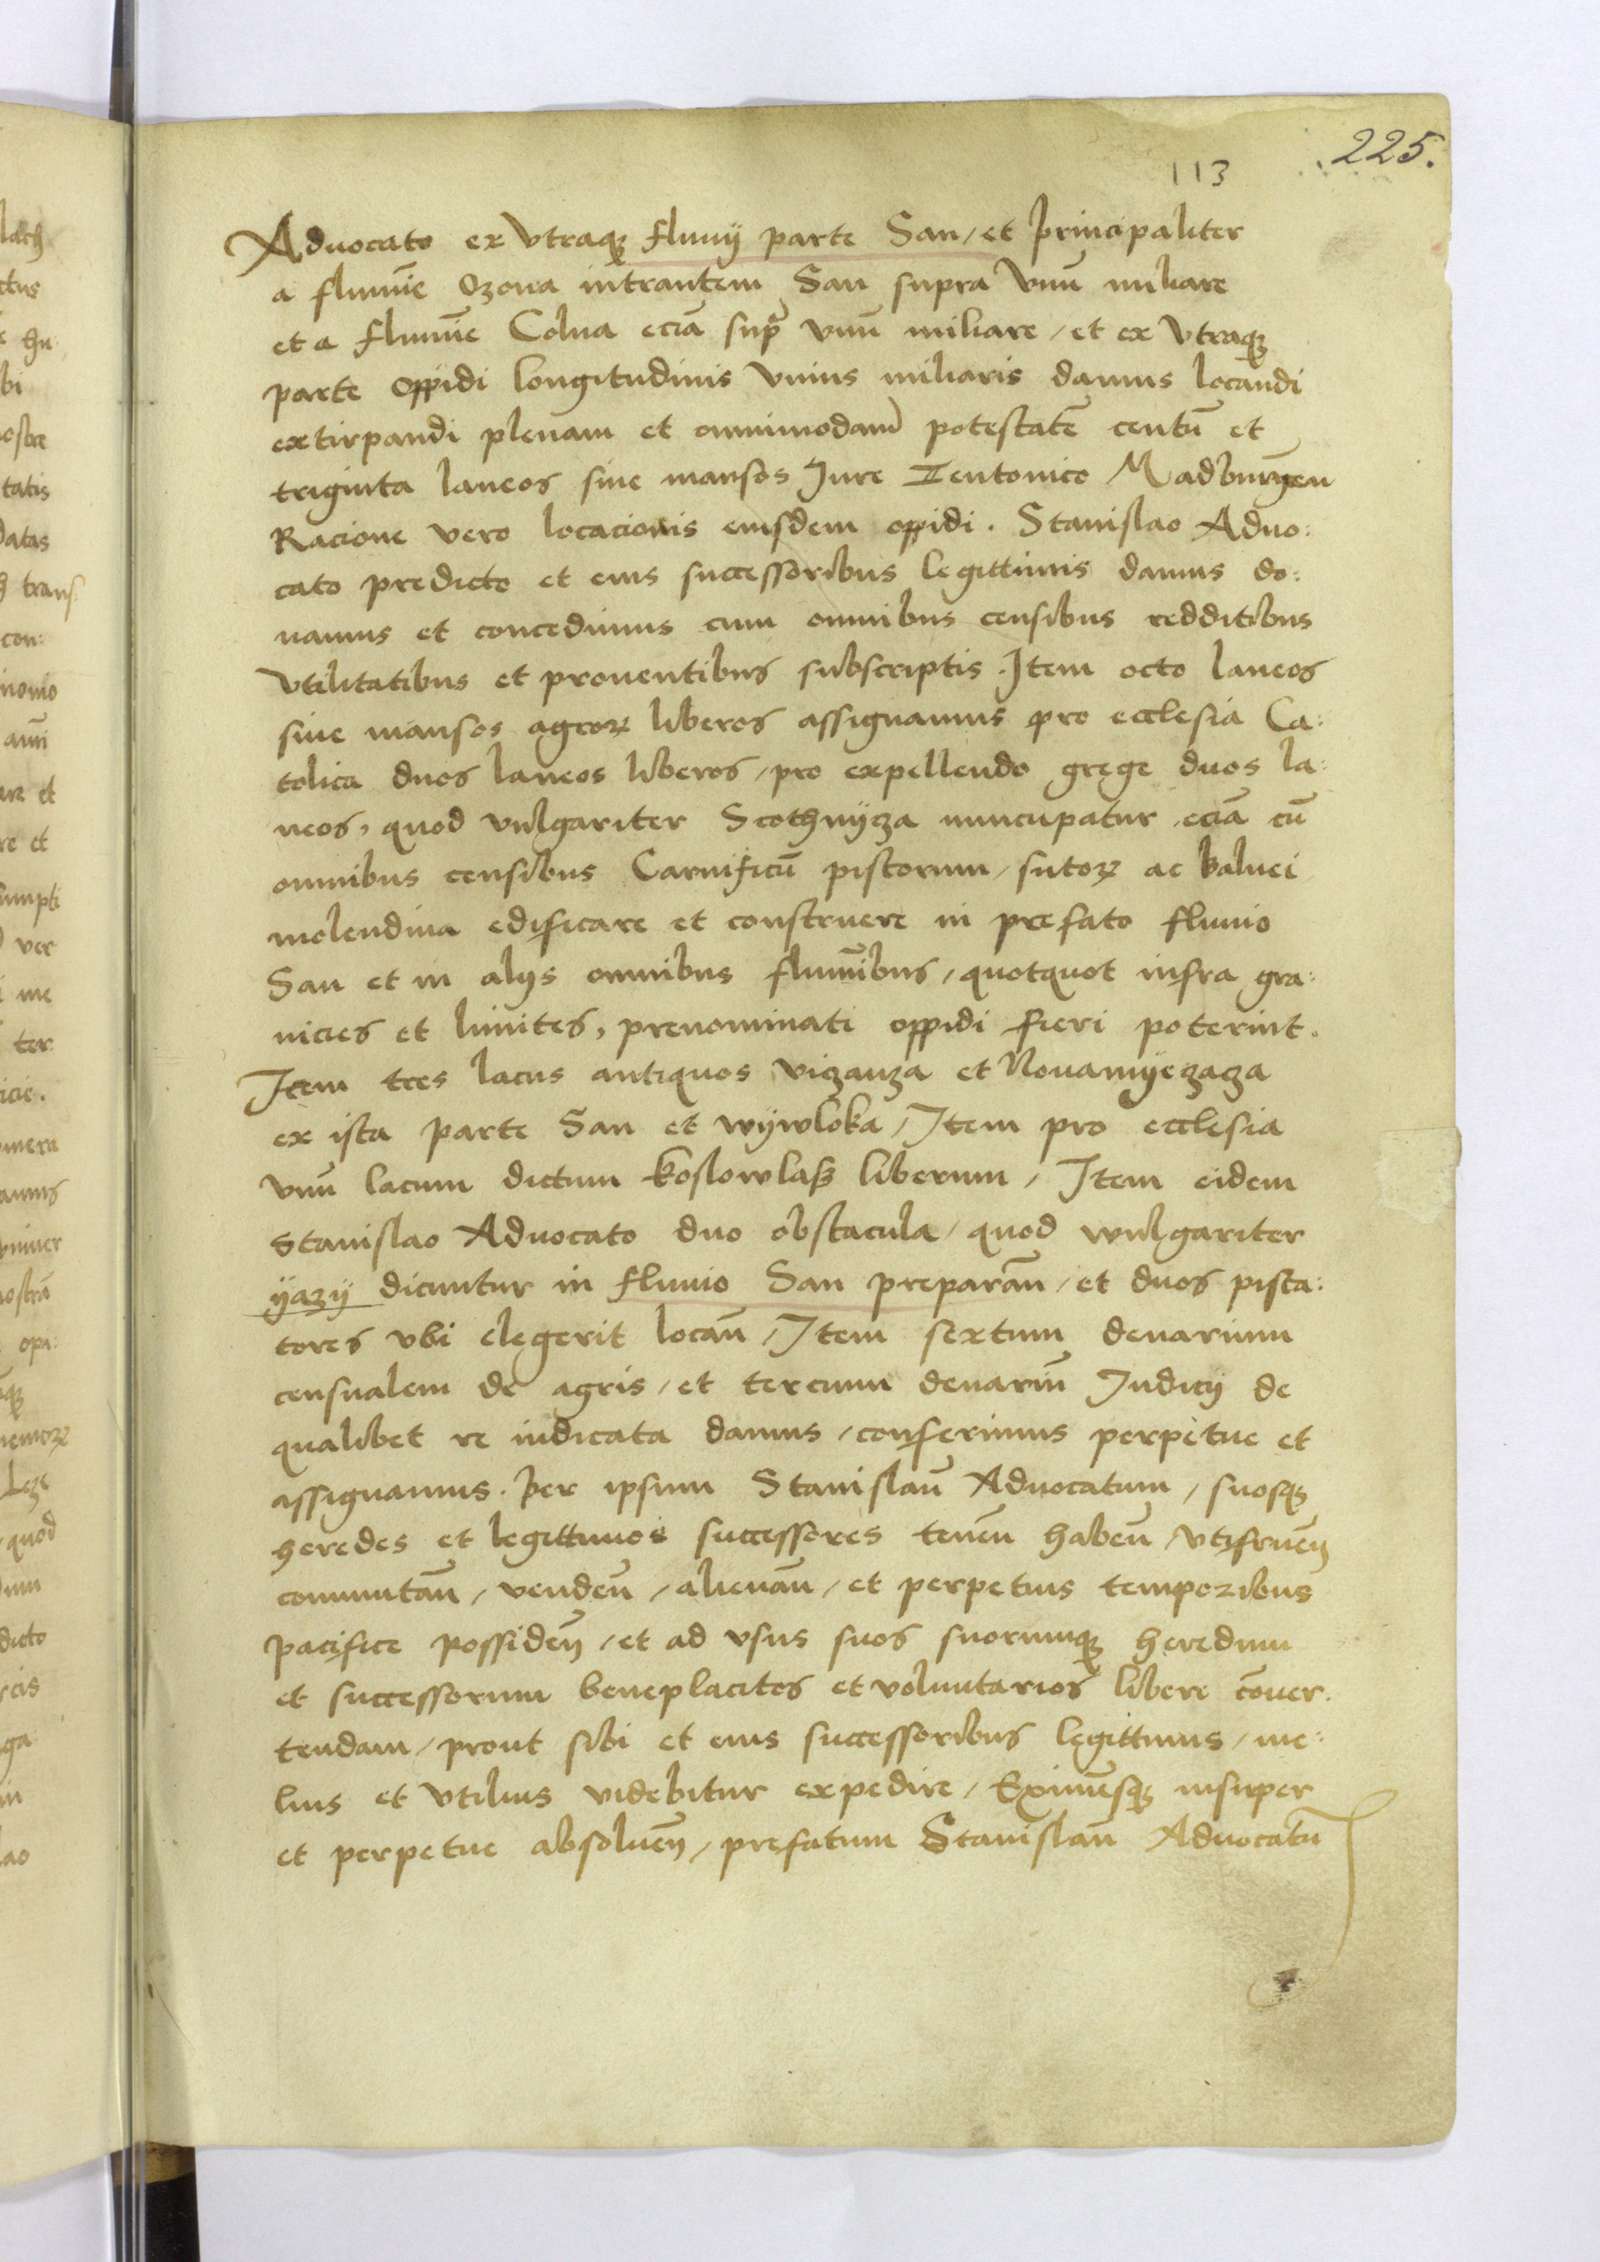 225.
113
Aduocato ex vtraqꝫ fluuij parte San / et principaliter
a flumĩe Ozona intrantem San supra vnũ miliare
et a flumĩe Colna eciã supᵃ vnũ miliare / et ex vtraqꝫ
parte oppidi longitudinis vnius miliaris damus locandi
extirpandi plenam et omnimodam potestatẽ centũ et
triginta laneos siue mansos Jure Teutonico Madburgeñ
Racione vero locacionis eiusdem oppidi . Stanislao Aduo:
cato predicto et eius successoribus legittimis damus do:
namus et concedimus cum omnibus censibus redditibus
vtilitatibus et prouentibus subscriptis . Item octo laneos
siue mansos agroꝝ liberos assignamus pro ecclesia Ca:
tolica duos laneos liberos / pro expellendo grege duos la:
neos, quod vulgariter Scothnijcza nuncupatur eciã cũ
omnibus censibus Carnificũ pistorum / sutoꝝ ac balnei
molendina edificare et construere in prefato fluuio
San et in alijs omnibus flumĩbus / quotquot infra gra:
nicies et limites, prenominati oppidi fieri poterint .
Item tres lacus antiquos viczanza et Nouamyeczacza
ex ista parte San et wijwloka / Item pro ecclesia
vnũ lacum dictum Koslowlaß liberum / Item eidem
Stanislao Aduocato duo obstacula / quod wulgariter
ijazij dicuntur in fluuio San preparañ / et duos pisca:
tores vbi elegerit locañ / Item sextum denarium
censualem de agris / et tercium denariũ Iudicij de
qualibet re iudicata damus / conferimus perpetue et
assignamus . Per ipsum Stanislaũ Aduocatum / suosqꝫ
heredes et legittimos successores teneñ habeñ / vtifrueñ
commutañ / vendeñ / alienañ / et perpetuis temporibus
pacifice possideñ / et ad vsus suos suorumqꝫ heredum
et successorum beneplacitos et voluntarios libere cõuer:
tendam / prout sibi et eius successoribus legittimis / me:
lius et vtilius videbitur expedire / Eximẽsqꝫ insuper
et perpetue absolueñ / prefatum Stanislaũ Aduocatũ